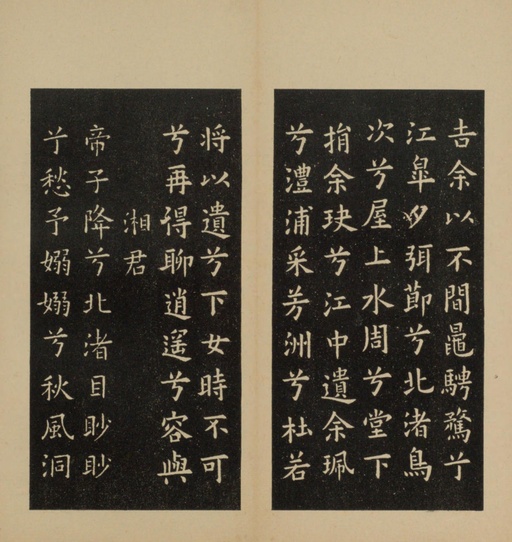 告余以不間鼂騁騖兮
江皐夕弭節兮北渚鳥
次兮屋上水周兮堂下
捐余玦兮江中遺余珮
兮澧浦采芳洲兮杜若
将以遺兮下女時不可
兮再得聊逍遥兮容與
湘君
帝子降兮北渚目眇眇
兮愁予嫋嫋兮秋風洞